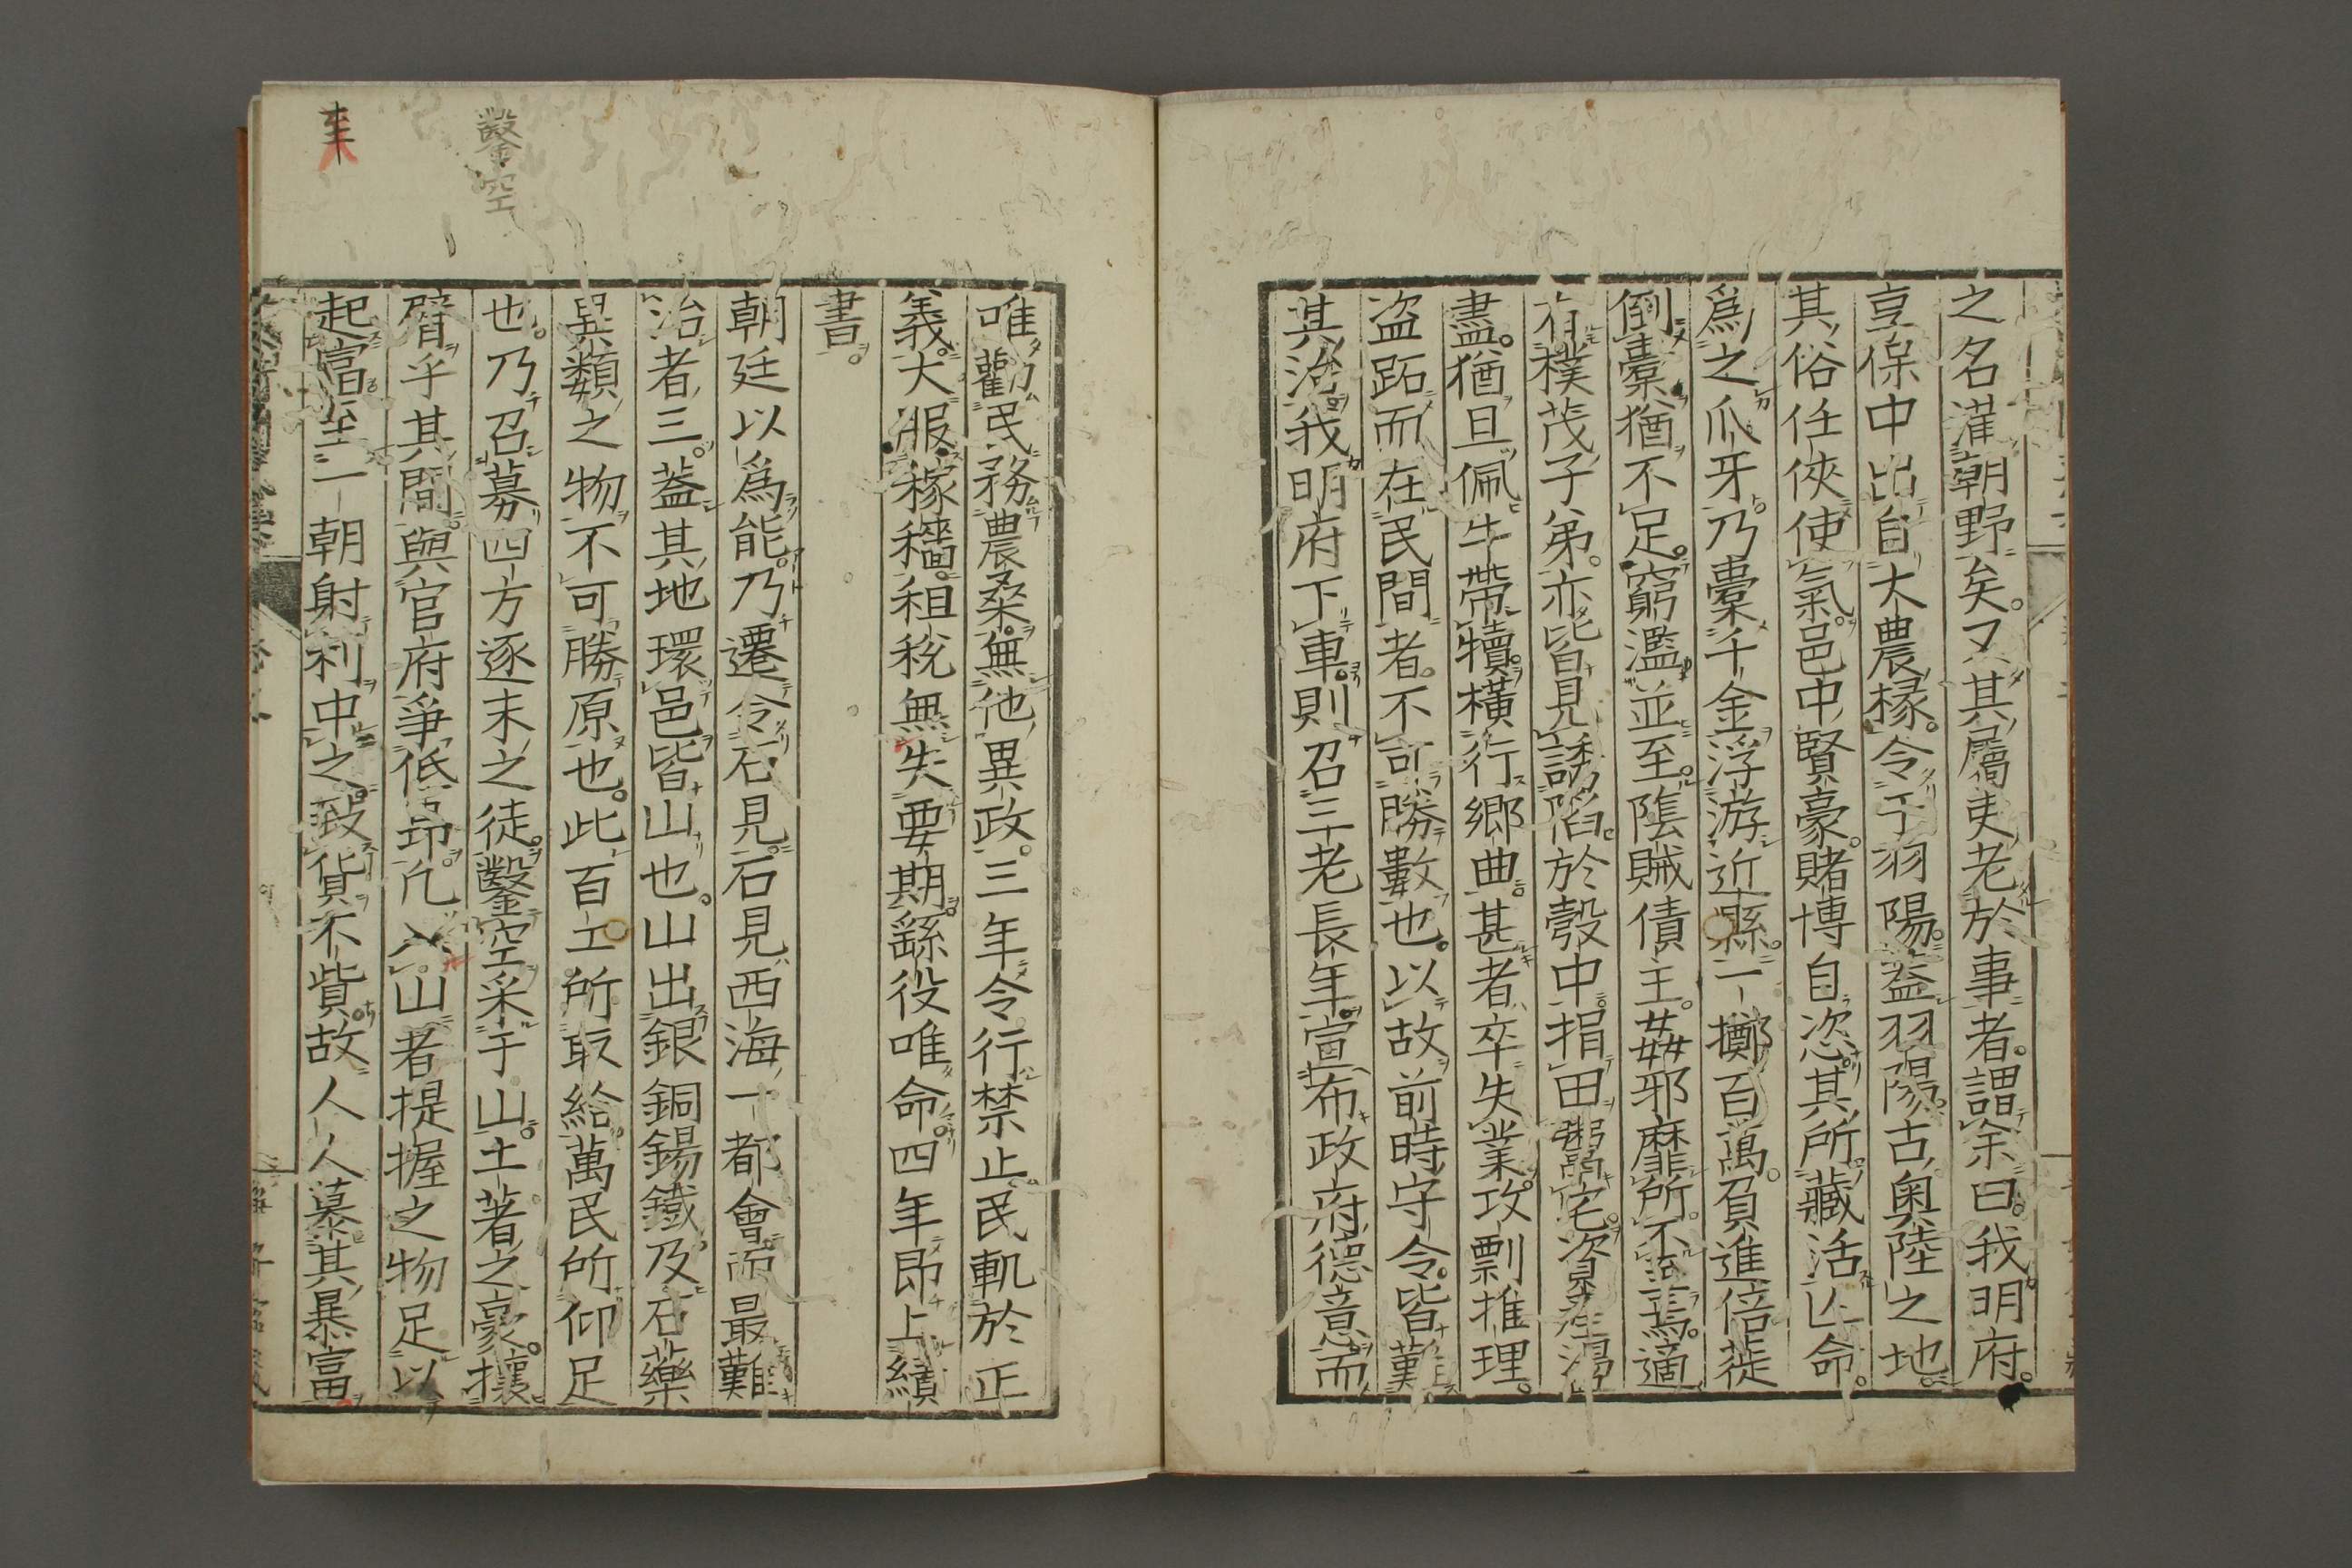 之名滿朝野矣又其屬吏老於事者謂余曰我明府
享保中出自大農椽令于羽陽蓋羽陽古奥陸之地
其俗任俠使氣邑中賢豪賭博自恣其所藏活亡命
爲之爪牙乃橐千金浮游近縣一擲百萬負進倍蓰
倒橐猶不足窮濫並至陰賊債主姦邪靡所不至焉適
有樸茂子弟亦皆見誘陷於彀中捐田鬻宅資產蕩
盡猶且佩牛帶犢橫行鄉曲甚者卒失業攻剽推理
盜跖而在民間者不可勝數也以故前時守令皆難
其治我明府下車則召三老長年宣布政府德意而
唯勸民務農桑無他異政三年令行禁止民軌於正
義大服稼穡租稅無失要期繇役唯命四年卽上績
書
朝廷以爲能乃遷令石見石見西海一都會而最難
治者三蓋其地環邑皆山也山出銀銅錫鐵及石藥
異類之物不可勝原也此百工所取給萬民所仰足
也乃召募四方逐末之徒鑿空采于山土著之豪攘
臂乎其間與官府爭低昂凡入山者提握之物足以
起富至一朝射利中之致貨不貲故人人慕其暴富
鑿空